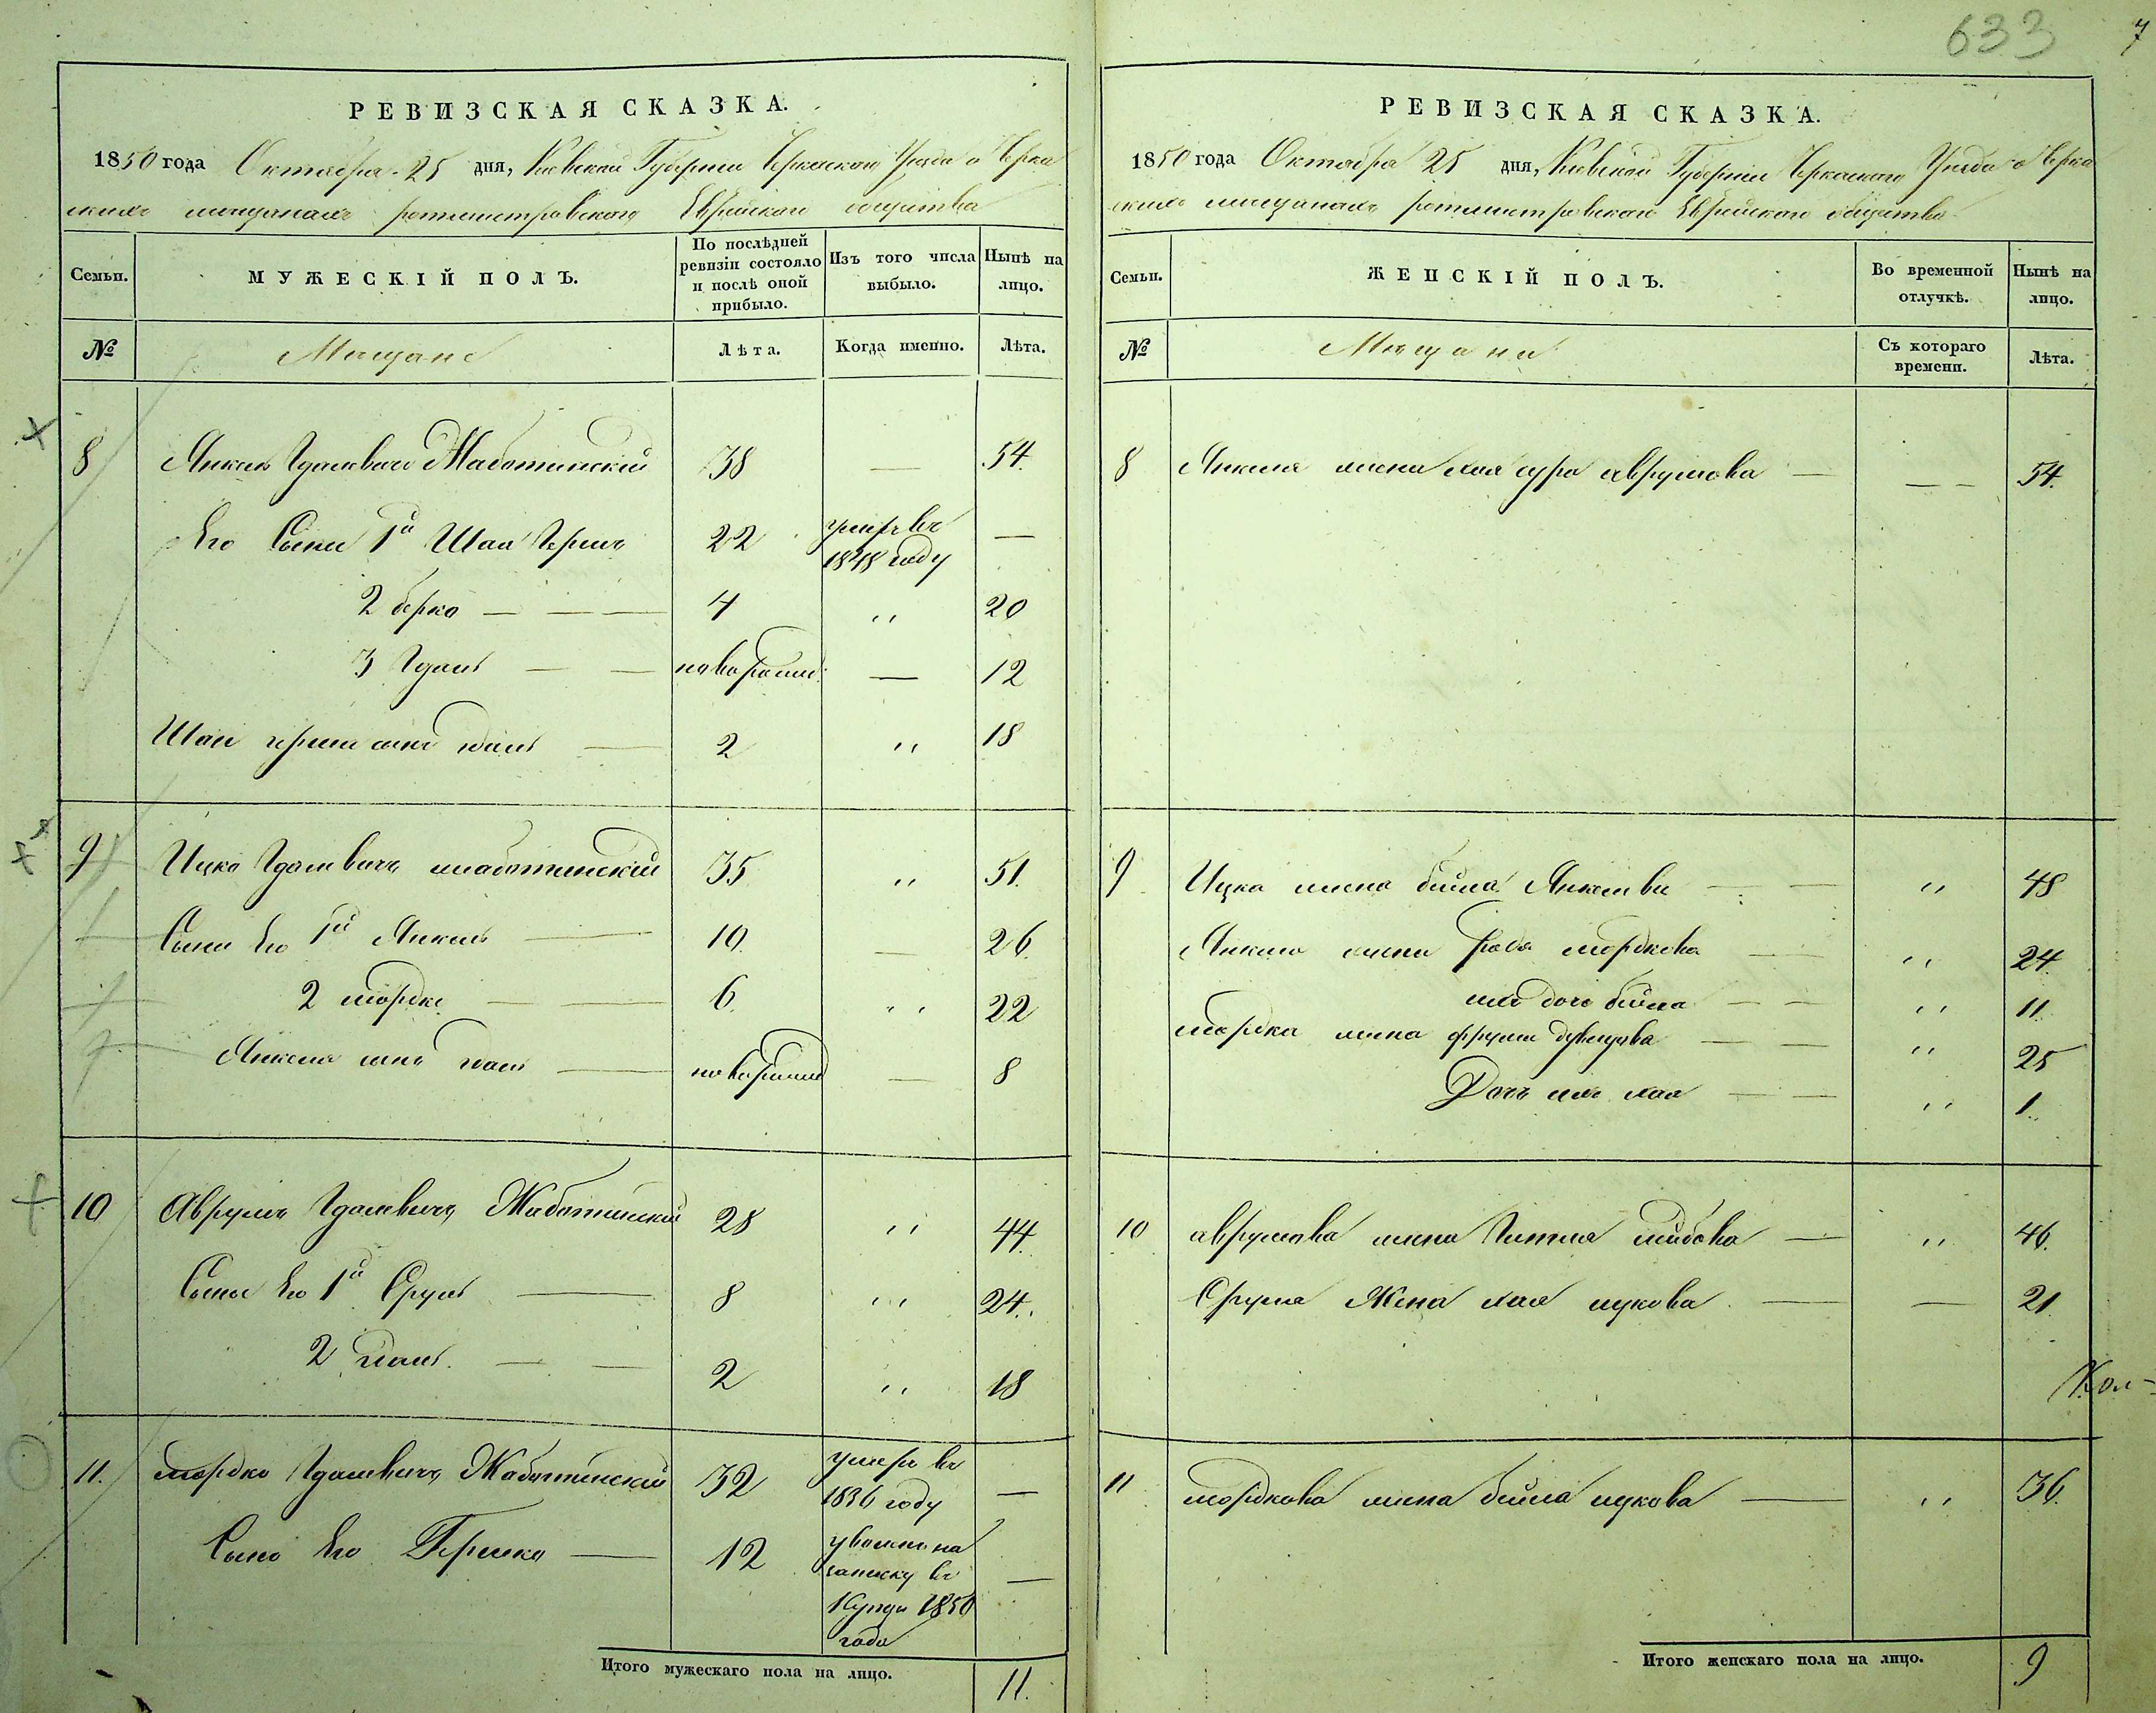 633 7
РЕВИЗСКАЯ СКАЗКА.
1850 года Октября 25 дня, Киевской Губернии Черкаского Уезда о Черка
скихъ мещанахъ ротмистровского Еврейского общества
Семьи.
МУЖЕСКІЙ ПОЛЪ.
По послѣдней ревизіи состояло и послѣ оной прибыло.
Изъ того числа выбыло.
Нынѣ на лицо.
№
Мещане
Лѣта.
Когда именно.
Лѣта.
8 Янкель Гдалевичъ Жаботинский 38 — 54.
Его Сыны 1й Шая Гершъ 22 умеръ въ 1848 году —
2 берко — — — 4 " 20
3 Гдаль — — новорожд. — 12
Шаи герша сынъ гдаль — 2 " 18
9 Ицко Гдалевичъ жаботинский 35 " 51.
Сыны Его 1й Янкель — 10. — 26.
2 мордко — — 6. " 22
Янкеля сынъ гдаль — новорожд — 8
10 Аврумъ Гдалевичъ Жаботинский 28 " 44.
Сыны Его 1й Сруль — 8 " 24.
2 гдаль. — — 2 " 18
11. мордко Гдалевичъ Жаботинский 32 умеръ въ 1836 году —
Сынъ Его Гершко — 12 на 1850 года —
Итого мужескаго пола на лицо. 11.
РЕВИЗСКАЯ СКАЗКА.
1850 года Октября 25 дня, Киевской Губернии Черкаского Уезда о Черка
скихъ мещанахъ ротмистровского Еврейского общества
Семьи.
ЖЕНСКІЙ ПОЛЪ.
Во временной отлучкѣ.
Нынѣ на лицо.
№
Мещане
Съ котораго времени.
Лѣта.
8 Янкеля жена хая сура аврумова — — — 54.
9 Ицка жена бейла Янкелева — — " 48
Янкеля жена мордкова — — " 24.
ихъ дочь бейла — — " 11
мордка жена фрума — — " 25
Дочь ихъ хая — — " 1.
10 аврумова жена — " 46.
Срула Жена хая ицкова — — 21.
Кол-
11 мордкова жена бейла ицкова — " 36.
Итого женскаго пола на лицо. 9